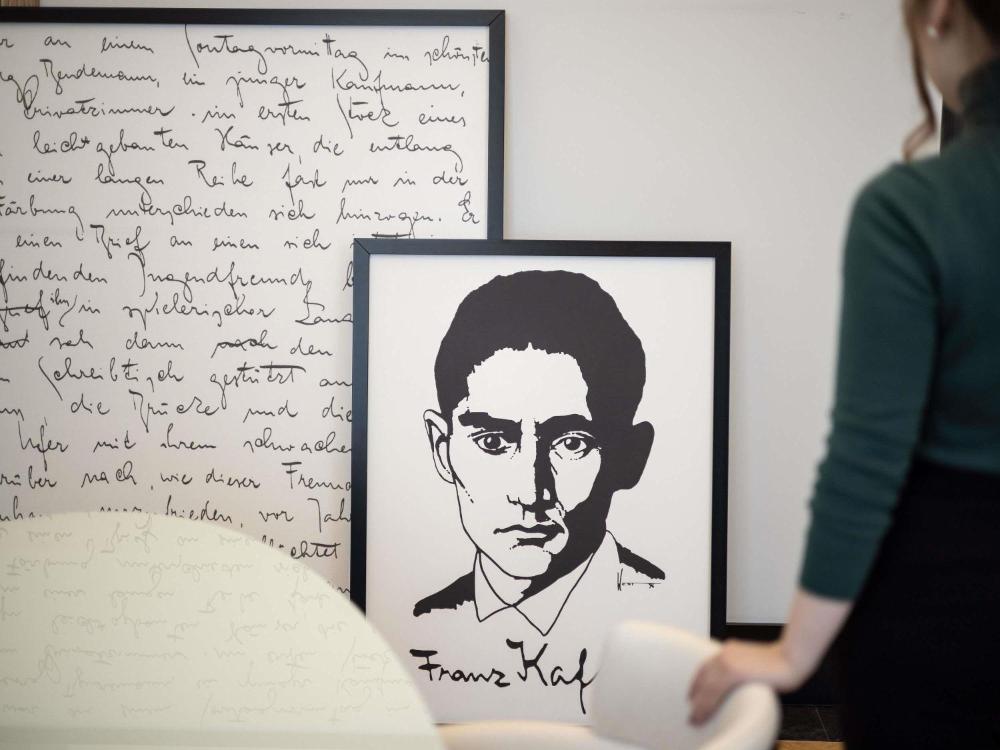 r an einem Sontagvormittag im schönsten
g Bendemann, ein junger Kaufmann,
Privatzimmer im ersten Stock eines
leicht gebauten Häuser, die entlang
einer langen Reihe fast nur in der
Färbung unterschieden sich hinzogen. Er
einen Brief an einen sich
findenden Jugendfreund b
ihn in spielerischer Lang
sah dann nach den
Schreibtisch gestützt au
die Brücke und die
Ufer mit ihrem schwache
rüber nach, wie dieser Freund
frieden, vor Jah
chtet
Franz Kaf